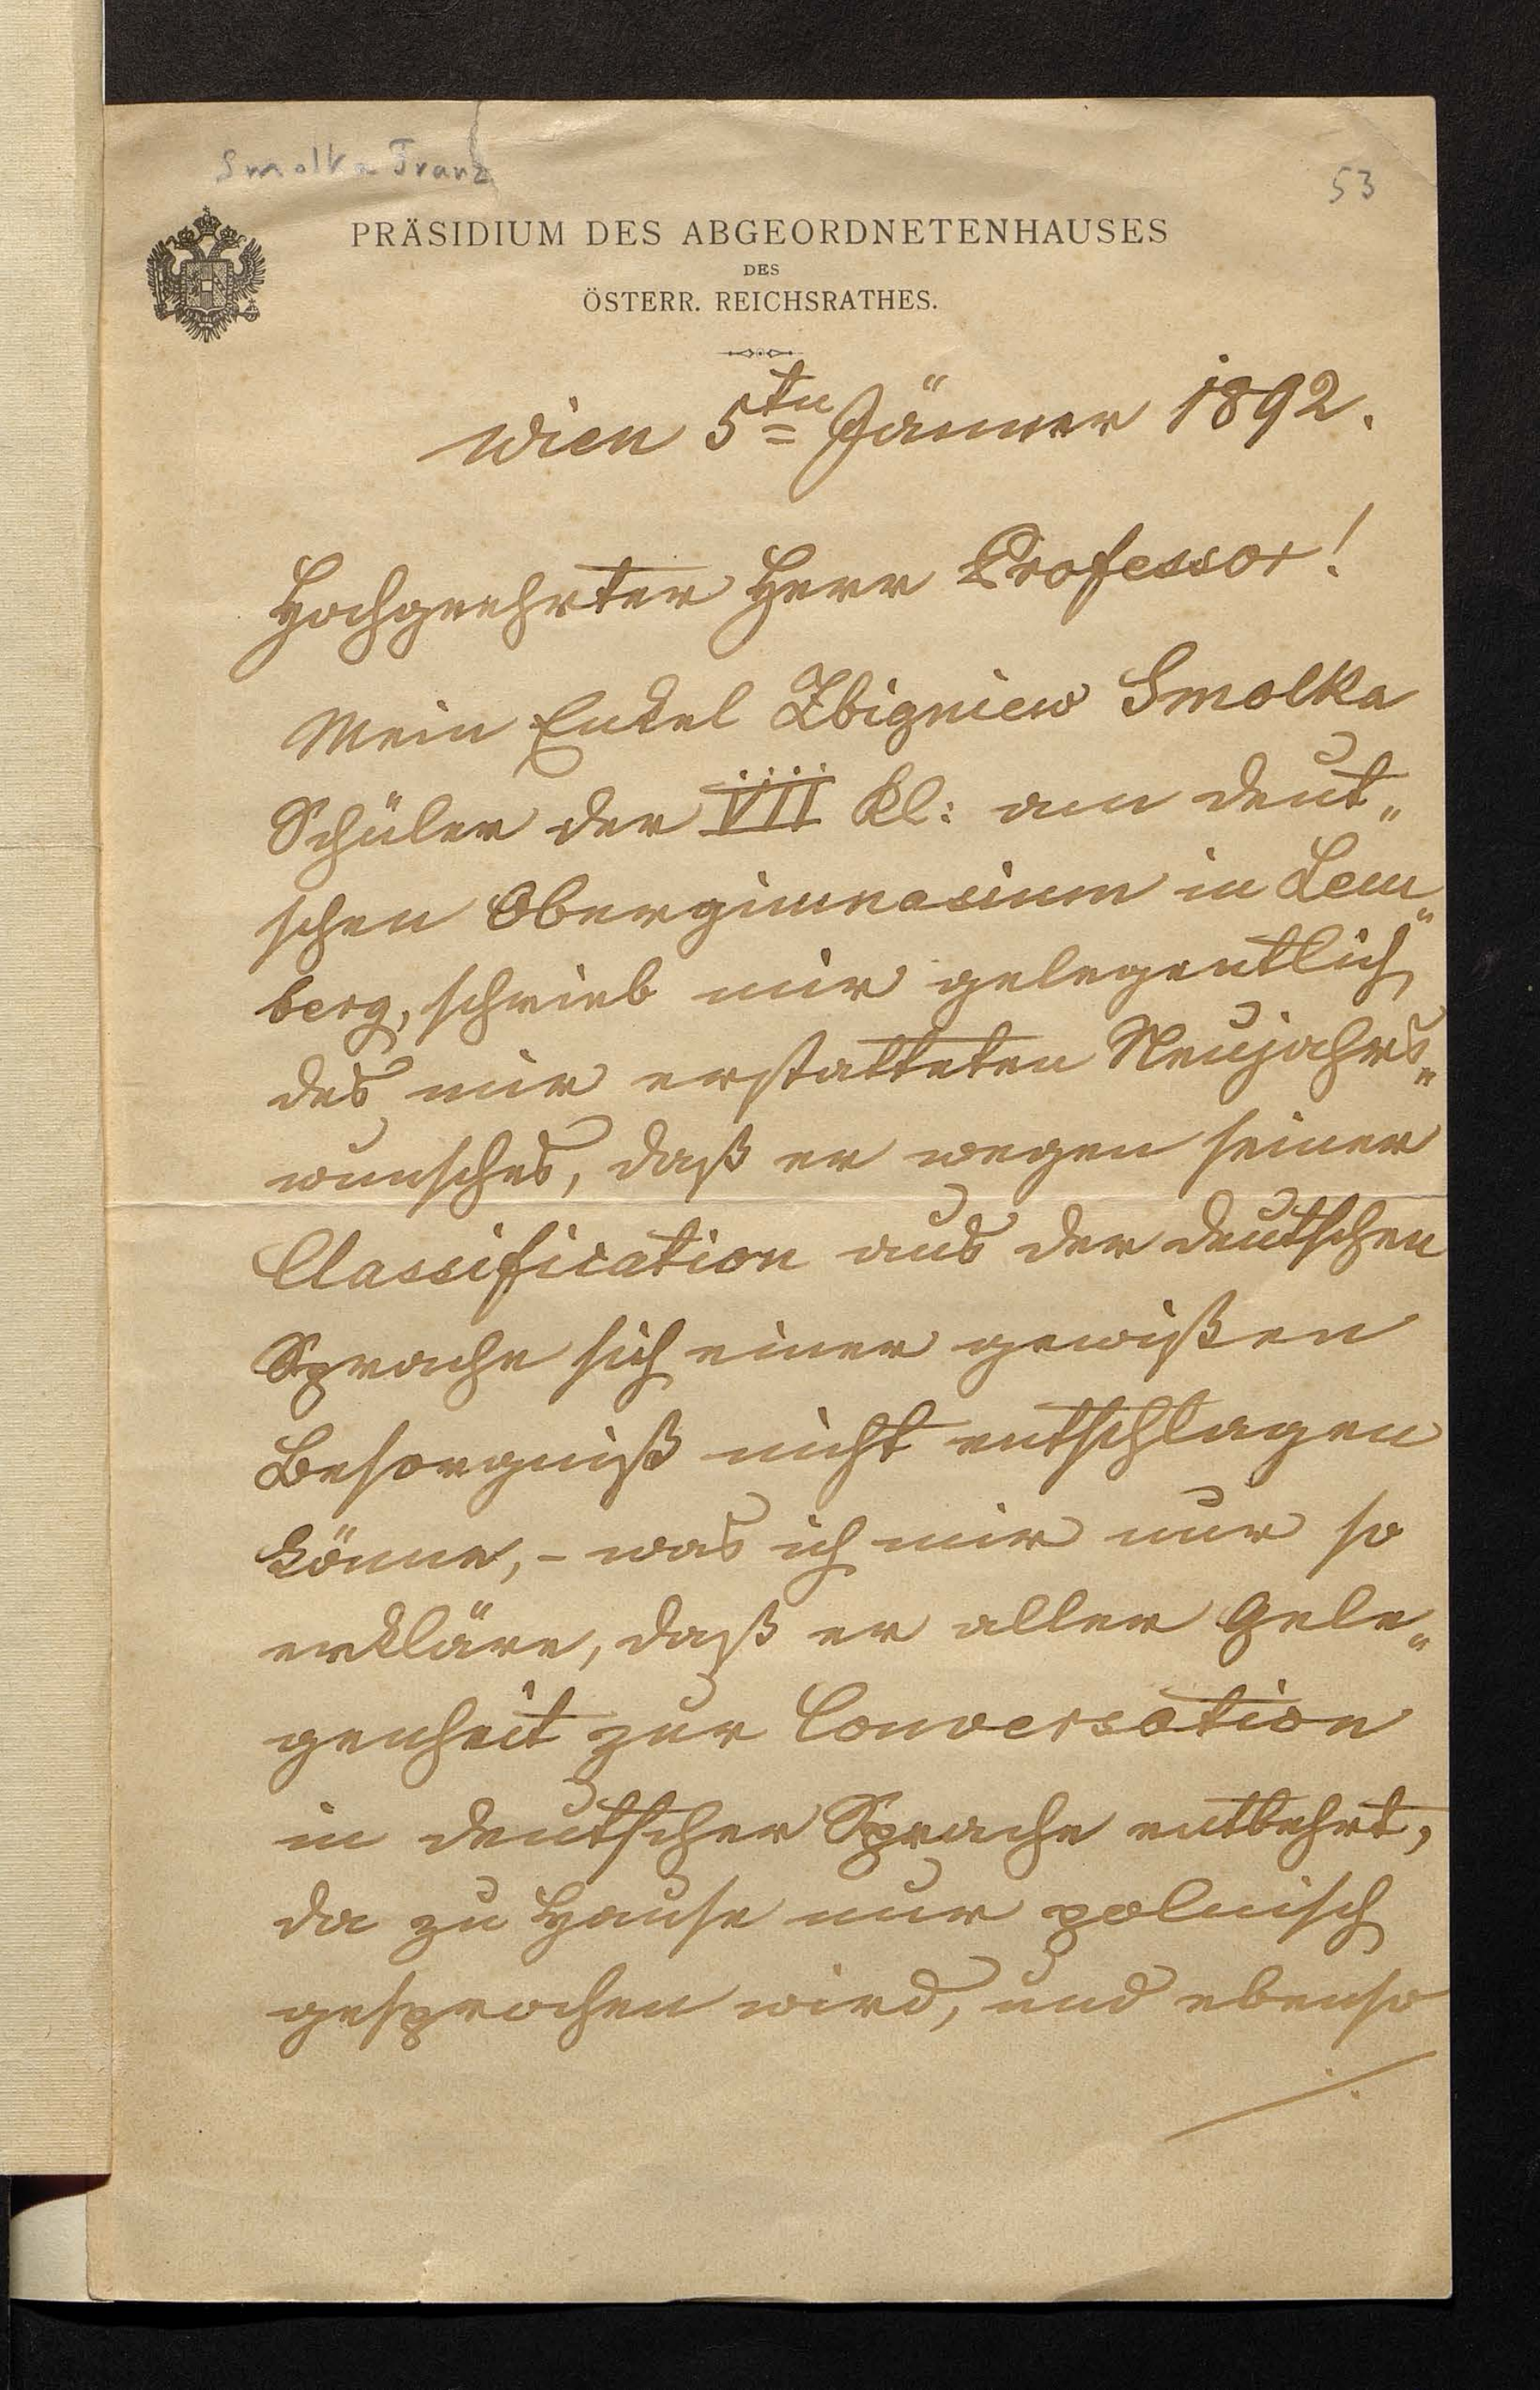 Smolka Franz
53
PRÄSIDIUM DES ABGEORDNETENHAUSES
DES
ÖSTERR. REICHSRATHES.
Wien 5ten Jänner 1892.
Hochgeehrter Herr Professor!
Mein Enkel Zbigniew Smolka
Schüler der VII Kl: am deut„
schen Obergimnasium in Lem„
berg, schrieb mir gelegentlich
des mir erstatteten Neujahrs„
wunsches, daß er wegen seiner
Classification aus der deutschen
Sprache sich einer gewißen
Besorgniß nicht entschlagen
könne, - was ich mir nur so
erkläre, daß er aller Gele„
genheit zur Conversation
in deutscher Sprache entbehrt,
da zu Hause nur polnisch
gesprochen wird, und ebenso